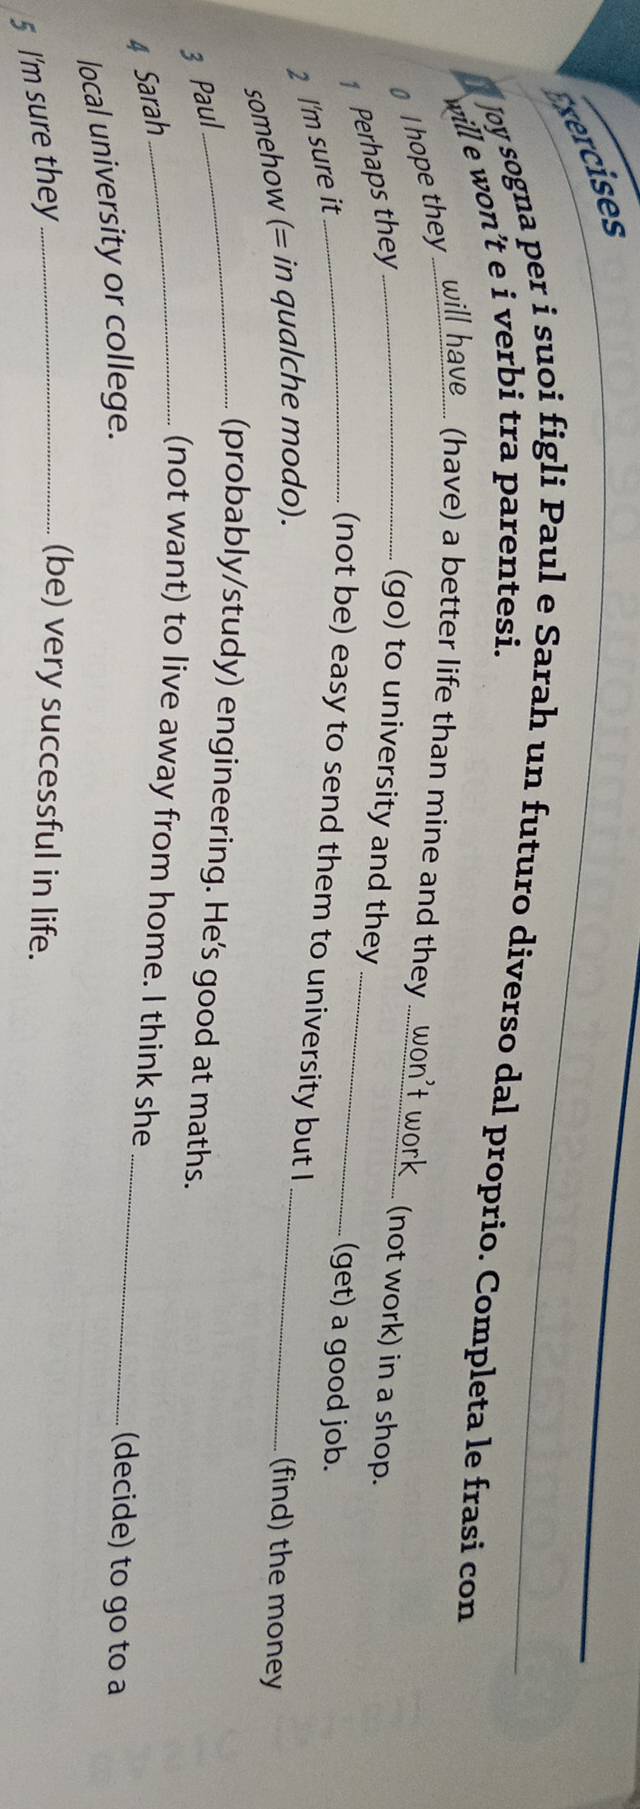 Exercises
1 Joy sogna per i suoi figli Paul e Sarah un futuro diverso dal proprio. Completa le frasi con
will e won't e i verbi tra parentesi.
0 I hope they will have (have) a better life than mine and they won't work (not work) in a shop.
1 Perhaps they ............ (go) to university and they ............ (get) a good job.
2 I'm sure it ............ (not be) easy to send them to university but I ............ (find) the money
somehow (= in qualche modo).
3 Paul ............ (probably/study) engineering. He's good at maths.
4 Sarah ............ (not want) to live away from home. I think she ............ (decide) to go to a
local university or college.
5 I'm sure they ............ (be) very successful in life.